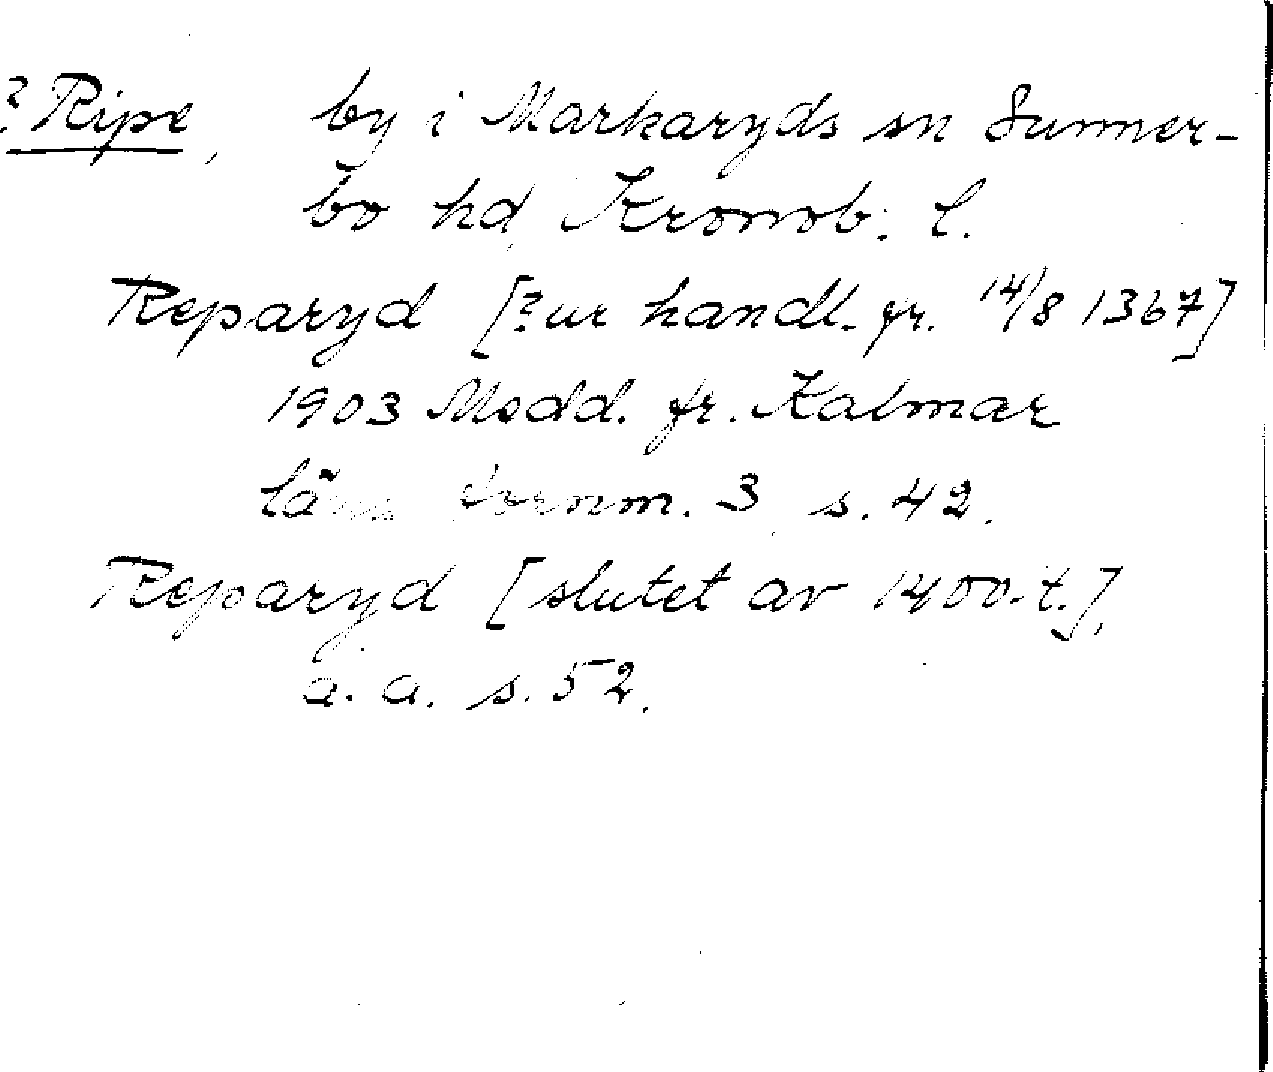 ? Ripe, by i Markaryds sn Sunner-
bo hd, Kronob. l.
Reparyd [? ur handl. fr. 14/8 1367]
1903 Medd. fr. Kalmar
läns fornm. 3, s. 42.
Reparyd [slutet av 1400-t.],
a. a. s. 52.